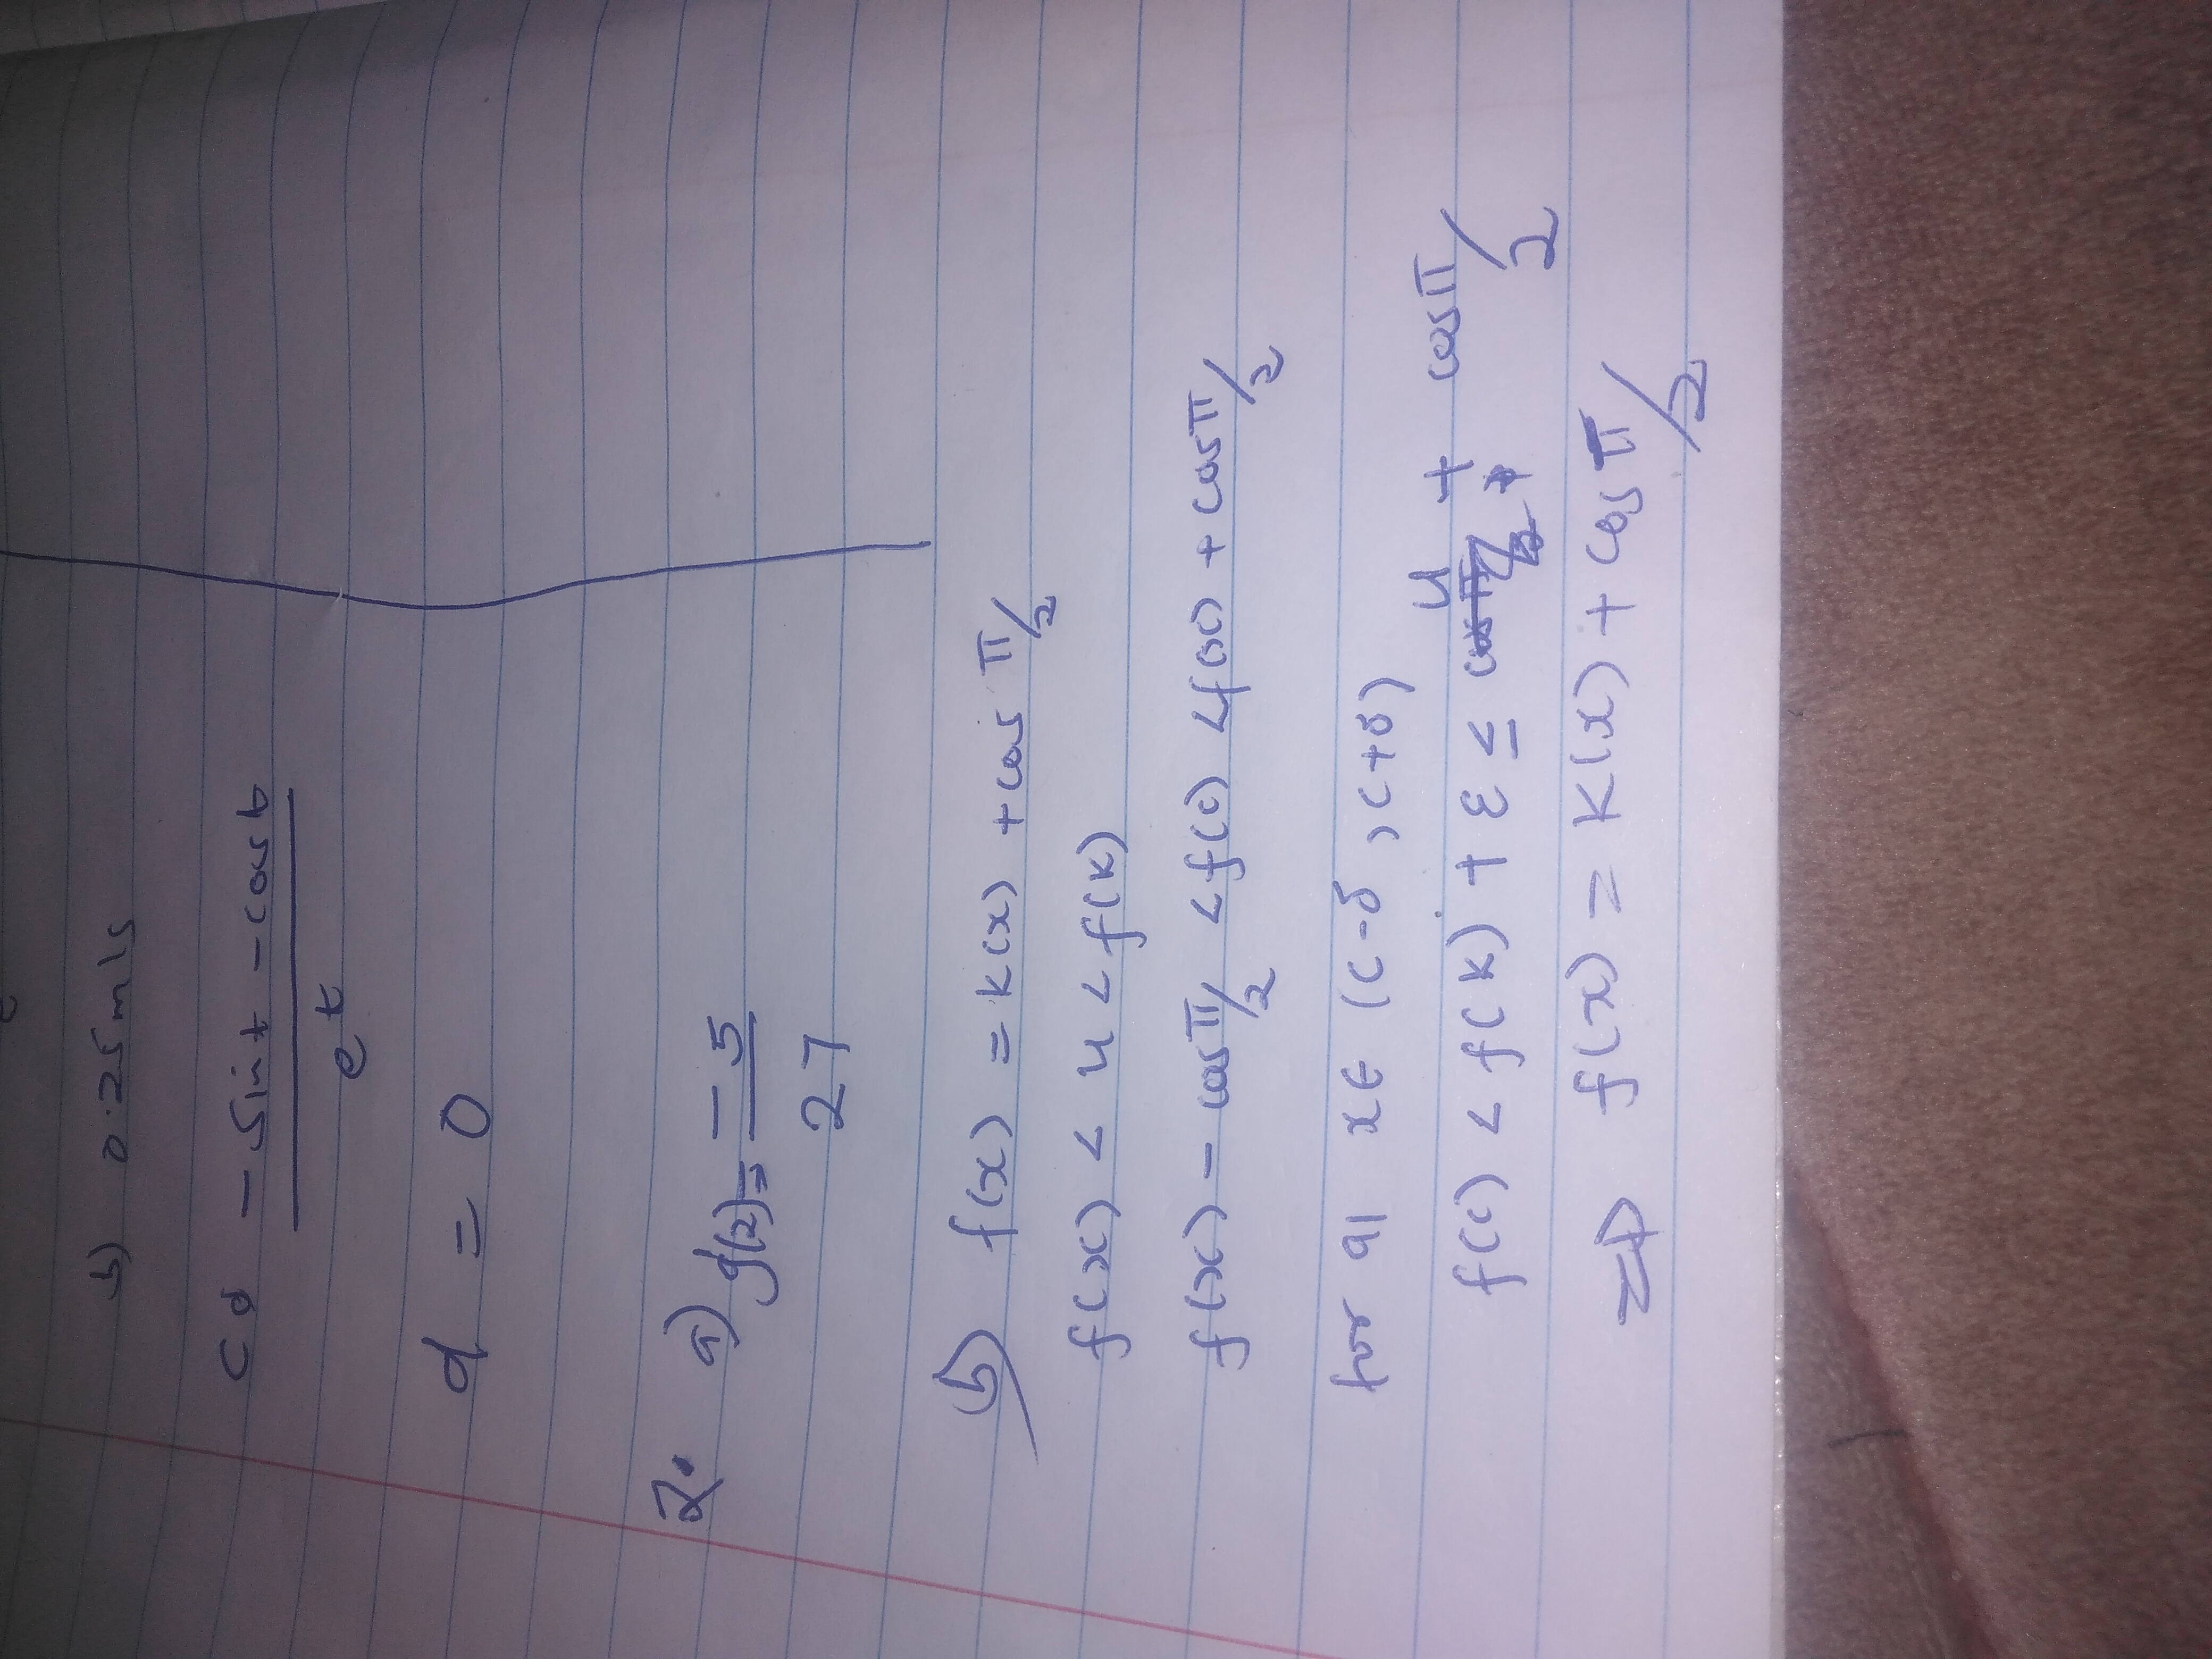 b) 0.25 m/s
c) -sint - cost
e^t
d = 0
2. a) g'(2) = -5
27
b) f(x) = k(x) + cos π/2
f(x) < u < f(k)
f(x) - cos π/2 < f(c) < f(x) + cos π/2
for all x ∈ (c-δ, c+δ)
f(c) < f(k) + ε ≤ u + cos π/2
⇒ f(x) = k(x) + cos π/2